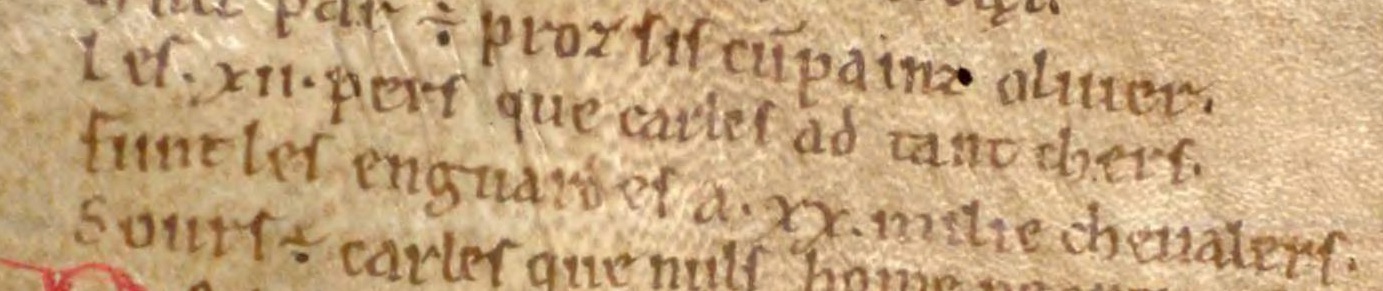 par ÷ proz sis cūpainz oliuer.
Les .xii. pers que carles ad tant chers.
funt les enguardes a .xx. milie cheualers.
Sours ÷ carles que nuls home